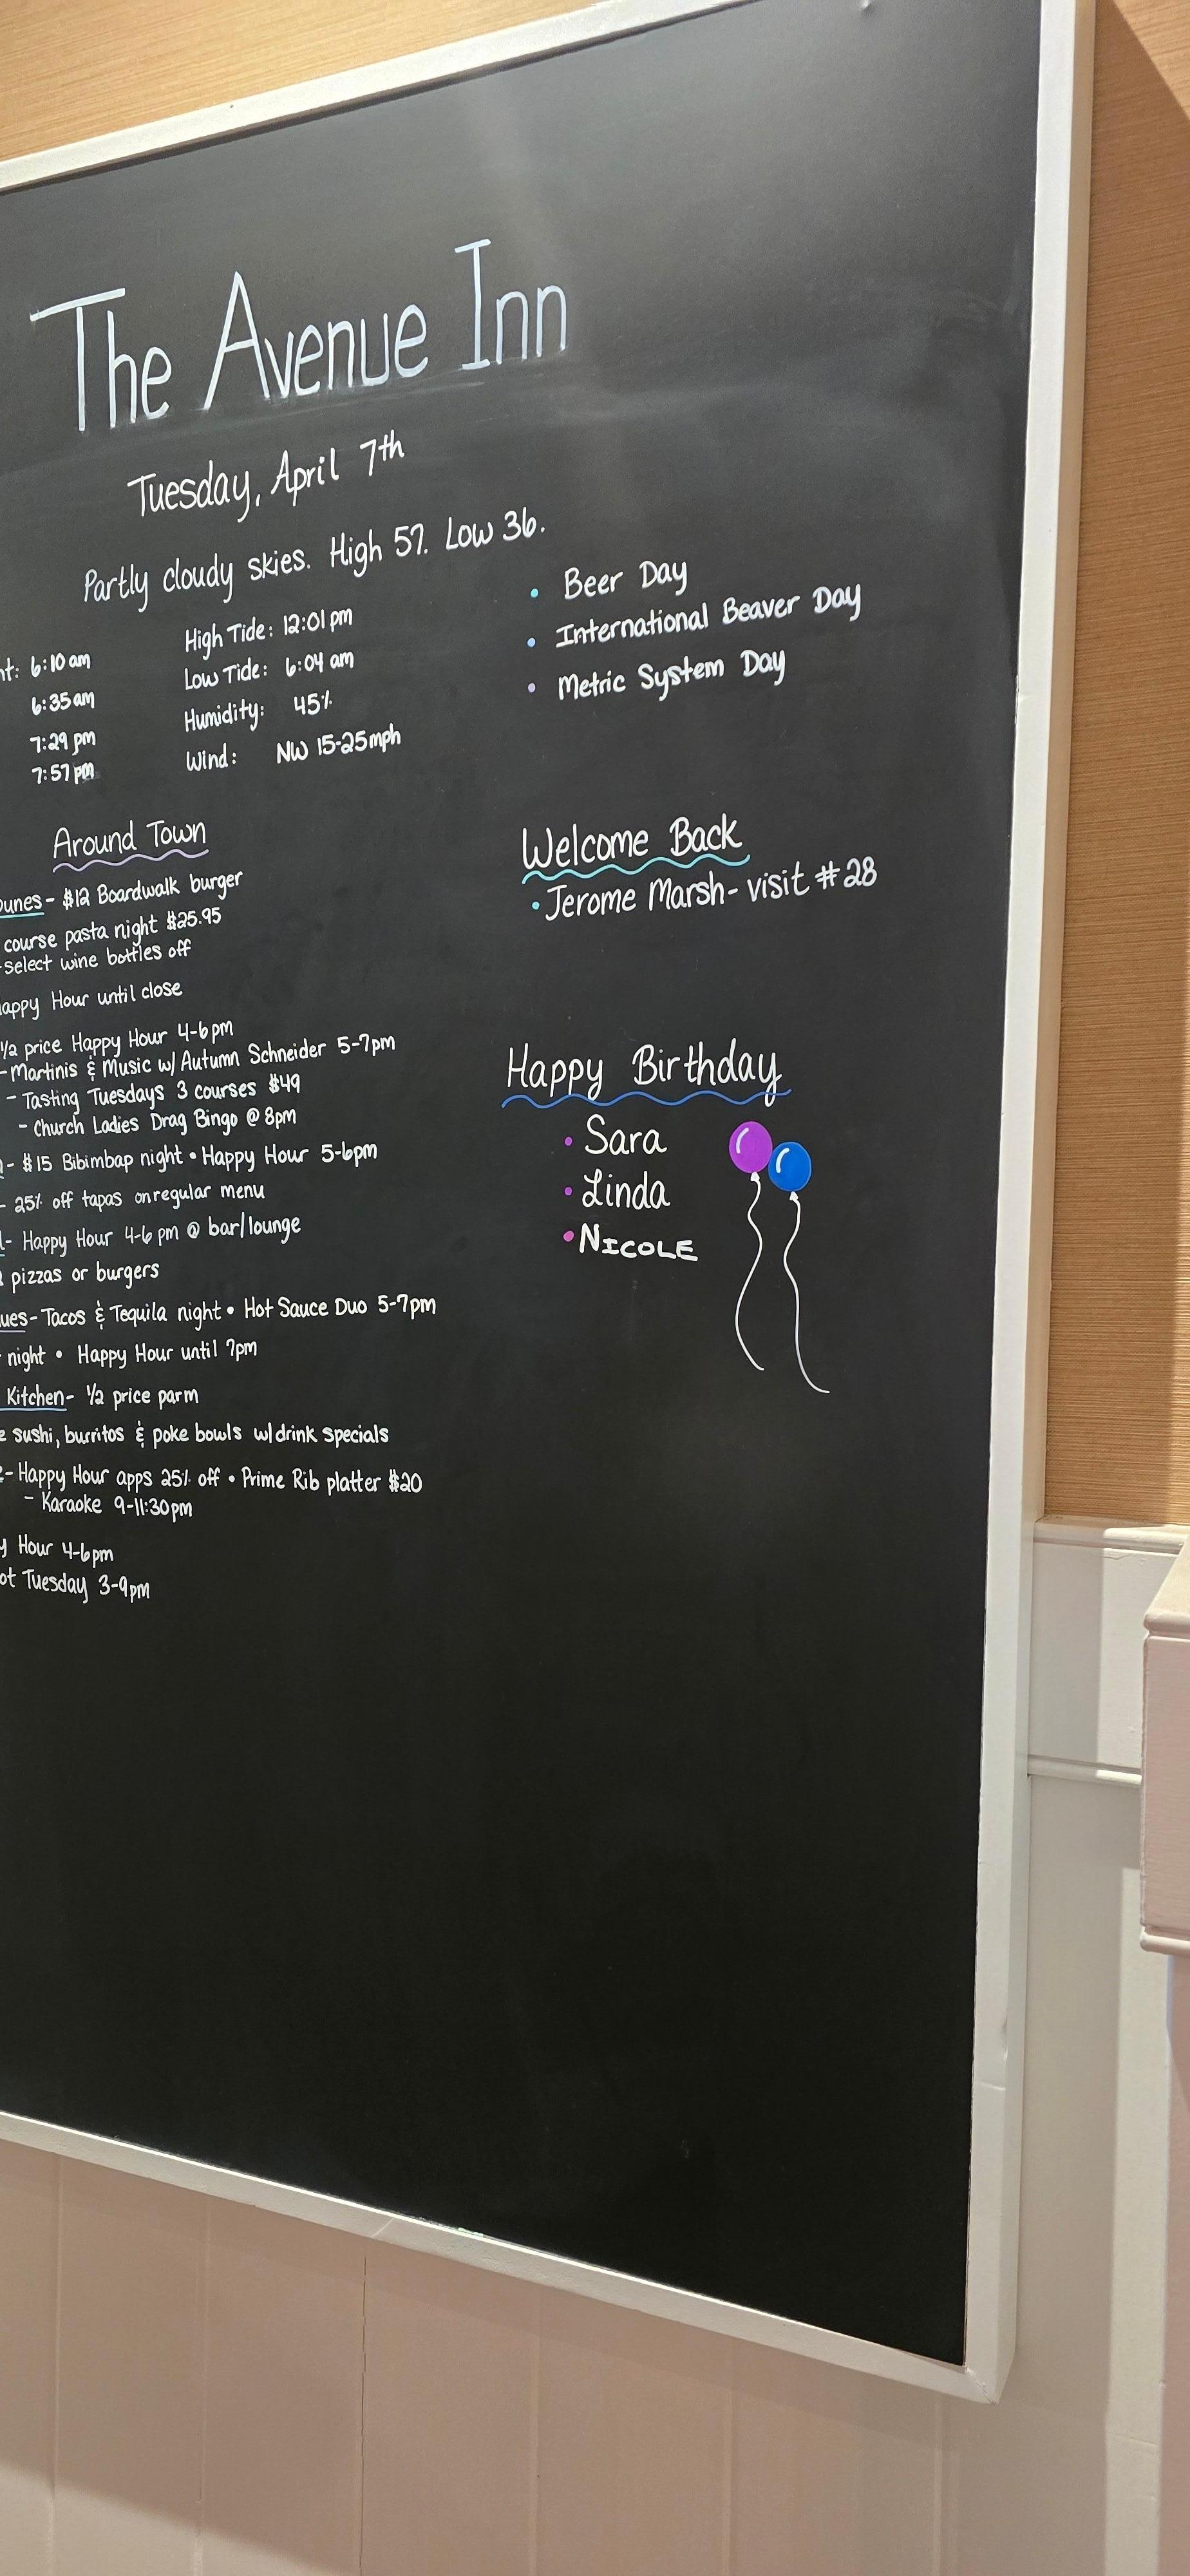 The Avenue Inn
Tuesday, April 7th
Partly cloudy skies. High 57. Low 36.
6:10 am
6:35 am
7:29 pm
7:57 pm
High Tide: 12:01 pm
Low Tide: 6:04 am
Humidity: 45%
Wind: NW 15-25mph
• Beer Day
• International Beaver Day
• Metric System Day
Around Town
- $12 Boardwalk burger
course pasta night $25.95
-select wine bottles off
Happy Hour until close
1/2 price Happy Hour 4-6pm
-Martinis & Music w/ Autumn Schneider 5-7pm
- Tasting Tuesdays 3 courses $49
- Church Ladies Drag Bingo @ 8pm
- $15 Bibimbap night • Happy Hour 5-6pm
- 25% off tapas on regular menu
- Happy Hour 4-6 pm @ bar/lounge
pizzas or burgers
- Tacos & Tequila night • Hot Sauce Duo 5-7pm
night • Happy Hour until 7pm
Kitchen- 1/2 price parm
sushi, burritos & poke bowls w/drink specials
- Happy Hour apps 25% off • Prime Rib platter $20
- Karaoke 9-11:30pm
Hour 4-6pm
Tuesday 3-9pm
Welcome Back
• Jerome Marsh- visit #28
Happy Birthday
• Sara
• Linda
• NICOLE